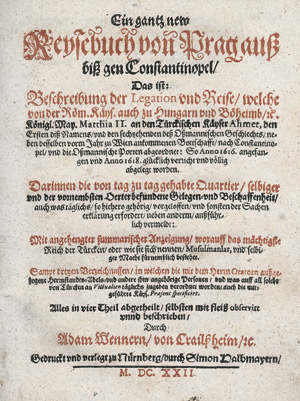 Ein gantz new
Reysebuch von Prag auß
biß gen Constantinopel/
Das ist:
Beschreibung der Legation vnd Reise/ welche
von der Röm. Käys. auch zu Hungarn vnd Böheimb/ ꝛc.
Königl. May. Matthia II. an den Türckischen Käyser Ahmet, den
Ersten diß Namens/ vnd den sechzehenden deß Oßmannischen Geschlechts/ ne-
ben desselben vorm Jahr zu Wien ankommenen Bottschafft/ nach Constantino-
pel/ vnd die Oßmannische Porten abgeordnet: So Anno 1616. angefan-
gen vnd Anno 1618. glücklich verricht vnd völlig
abgelegt worden.
Darinnen die von tag zu tag gehabte Quartier/ selbiger
vnd der vornembsten Oerter befundene Gelegen- vnd Beschaffenheit/
auch was täglichs/ so hiehero gehörig/ vorgeloffen/ vnd sonsten der Sachen
erklärung erfordert/ neben anderm/ außführ-
lich vermeldt:
Mit angehengter summarischer Anzeigung/ worauff das mächtigste
Reich der Türcken/ oder wie sie sich nennen/ Mußulmanlar, vnd selbi-
ge Macht fürnemblich bestehet.
Sampt dreyen Verzeichnussen/ in welchen die mit dem Herrn Oratorn außge-
zogene Herrenstandts/ Adels/ vnd andere jhm angehörige Personen/ vnd was auff all solche
von Türcken an Victualien täglichs zugeben verordnet worden/ auch die mit-
geführte Käys. Præsent specificirt.
Alles in vier Theil abgetheilt/ selbsten mit fleiß observirt
vnnd beschrieben/
Durch
Adam Wennern/ von Crailßheim/ ꝛc.
Gedruckt vnd verlegt zu Nürnberg/ durch Simon Halbmayern/
M. DC. XXII.